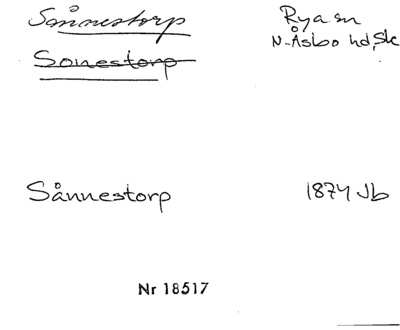 Sånnestorp Rya sn
Sonestorp N. Åsbo hd, Sk
Sånnestorp 1874 Jb
Nr 18517